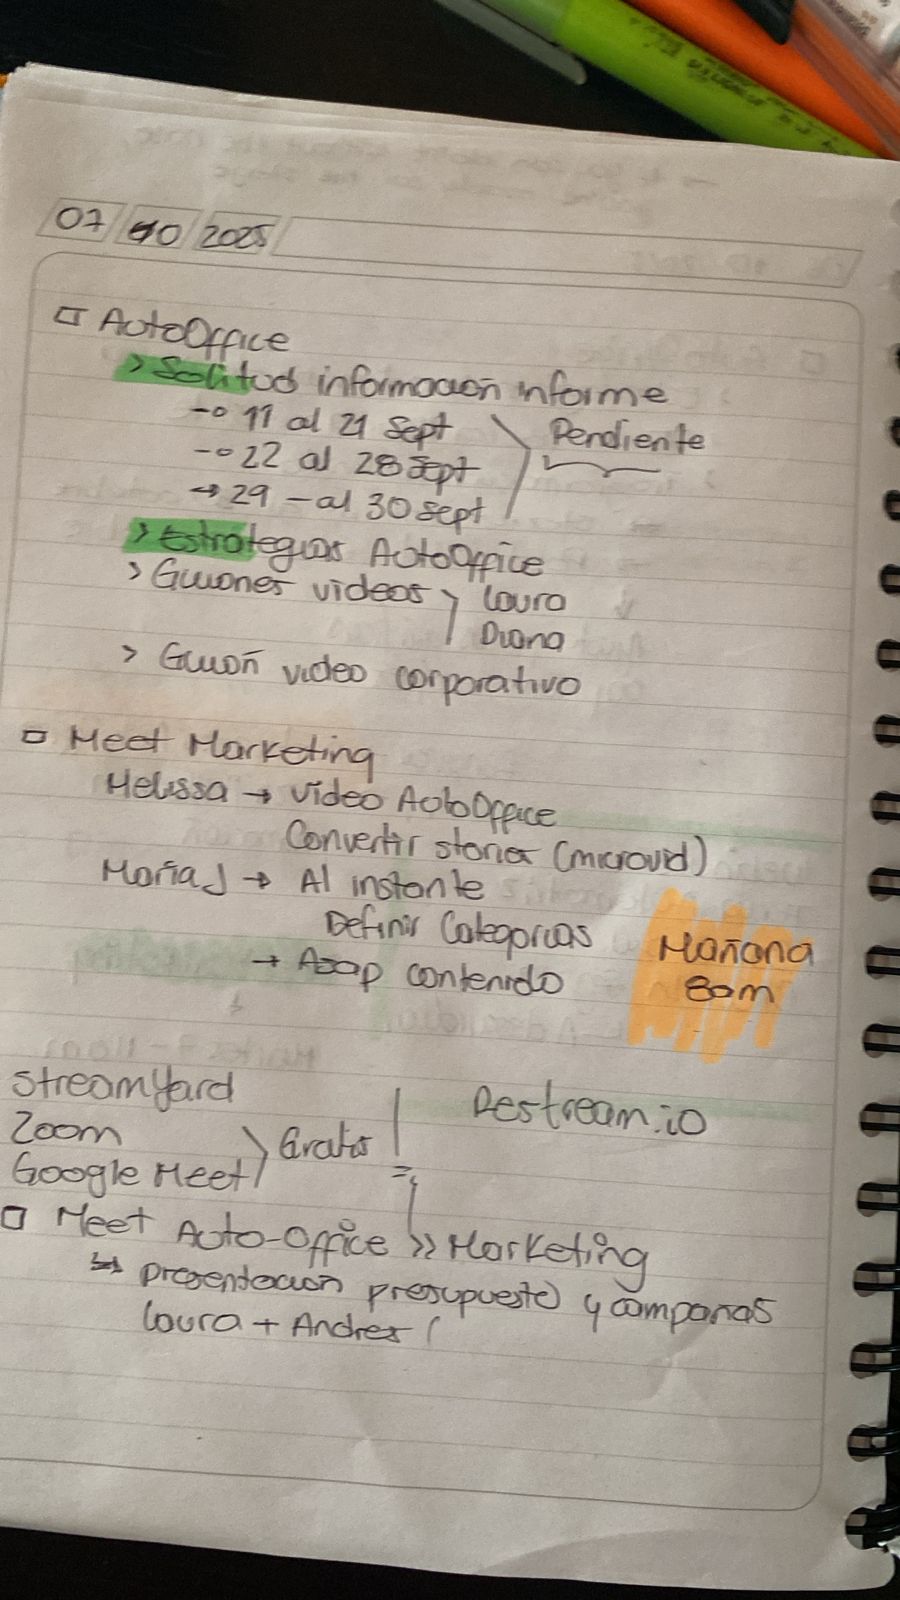 07 10 2025
AutoOffice
> Solitud información informe
→ 11 al 21 Sept
→ 22 al 28 Sept
Pendiente
→ 29 - al 30 sept
> Estrategias AutoOffice
> Guiones videos
Laura
Diana
> Guión video corporativo
Meet Marketing
Melissa → Video AutoOffice
Convertir stories (microvid)
María J → Al instante
Definir Categorias
→ Asap contenido
Mañana
8am
StreamYard
Zoom
Google Meet
Gratis
Restream.io
Meet Auto-Office >> Marketing
↳ presentación presupuesto y campañas
Laura + Andres (